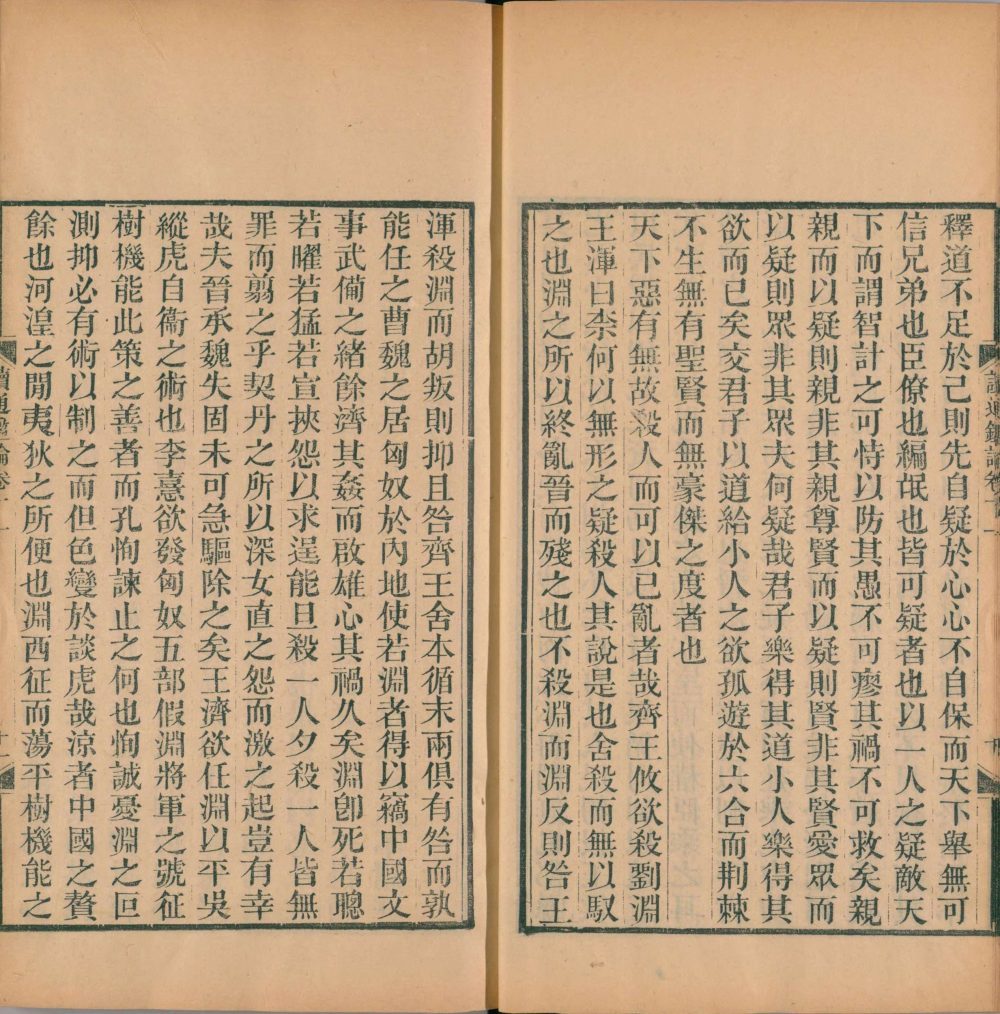 釋道不足於己則先自疑於心心不自保而天下舉無可
信兄弟也臣僚也編氓也皆可疑者也以一人之疑敵天
下而謂智計之可恃以防其愚不可瘳其禍不可救矣親
親而以疑則親非其親尊賢而以疑則賢非其賢愛眾而
以疑則眾非其眾夫何疑哉君子樂得其道小人樂得其
欲而已矣交君子以道給小人之欲孤遊於六合而荆棘
不生無有聖賢而無豪傑之度者也
天下惡有無故殺人而可以已亂者哉齊王攸欲殺劉淵
王渾曰柰何以無形之疑殺人其說是也舍殺而無以馭
之也淵之所以終亂晉而殘之也不殺淵而淵反則咎王
渾殺淵而胡叛則抑且咎齊王舍本循末兩俱有咎而孰
能任之曹魏之居匈奴於內地使若淵者得以竊中國文
事武備之緒餘濟其姦而啟雄心其禍久矣淵卽死若聰
若曜若猛若宣挾怨以求逞能旦殺一人夕殺一人皆無
罪而翦之乎契丹之所以深女直之怨而激之起豈有幸
哉夫晉承魏失固未可急驅除之矣王濟欲任淵以平吳
縱虎自衞之術也李憙欲發匈奴五部假淵將軍之號征
樹機能此策之善者而孔恂諫止之何也恂誠憂淵之叵
測抑必有術以制之而但色變於談虎哉涼者中國之贅
餘也河湟之閒夷狄之所便也淵西征而蕩平樹機能之